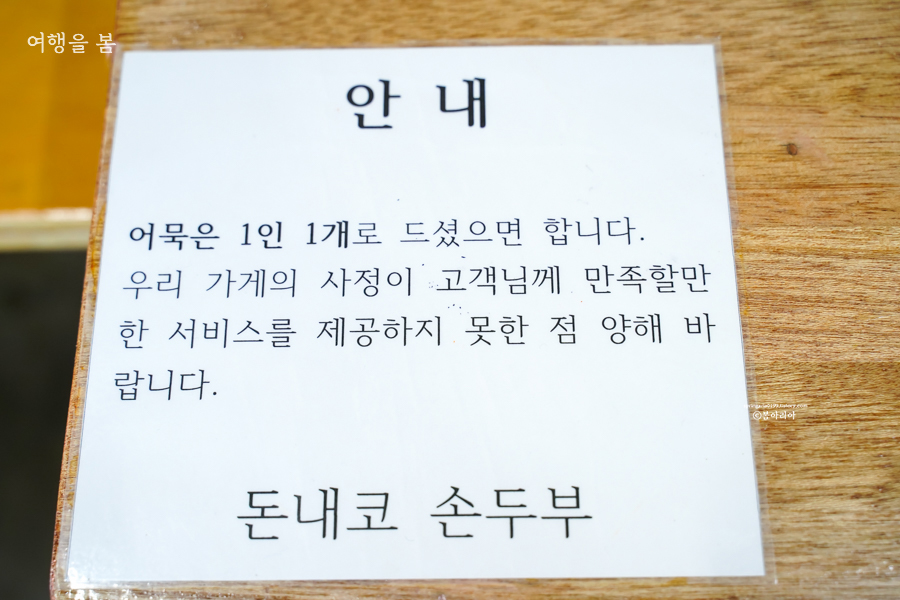 여행을 봄
안 내
어묵은 1인 1개로 드셨으면 합니다.
우리 가게의 사정이 고객님께 만족할만
한 서비스를 제공하지 못한 점 양해 바
랍니다.
ⓒ봄아리아
돈내코 손두부